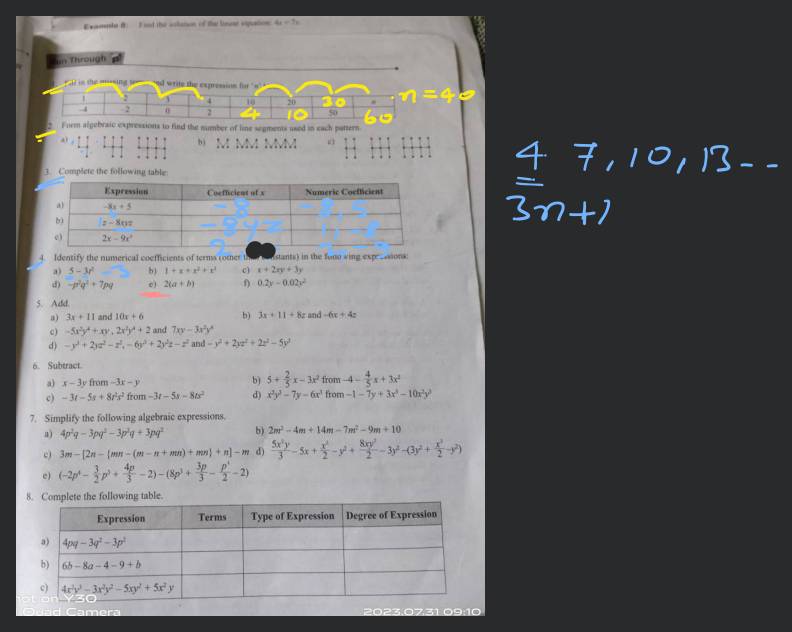 Example 8: Find the solution of the linear equation: 4x = 7x
Run Through
in the missing and write the expression for 'n'
1 2 3 4 10 20 30 n n = 40
-4 -2 0 2 4 10 50 60
2. Form algebraic expressions to find the number of line segments used in each pattern.
a) b) c)
4 7, 10, 13 - -
3n+1
3. Complete the following table:
Expression Coefficient of x Numeric Coefficient
a) -8x + 5 -8 -8, 5
b) z - 8xyz -8yz 1, -8
c) 2x - 9x² 2 2, -9
4. Identify the numerical coefficients of terms (other than constants) in the following expressions:
a) 5 - 3t² -3 b) 1 + x + x² + x³ c) x + 2xy + 3y
d) -p²q² + 7pq e) 2(a + b) f) 0.2y - 0.02y²
5. Add.
a) 3x + 11 and 10x + 6 b) 3x + 11 + 8z and -6x + 4z
c) -5x²y⁴ + xy, 2x²y⁴ + 2 and 7xy - 3x²y⁴
d) -y³ + 2yz² - z², -6y³ + 2y²z - z² and -y² + 2yz² + 2z² - 5y³
6. Subtract.
a) x - 3y from -3x - y b) 5 + 2/5 x - 3x² from -4 - 4/5 x + 3x²
c) -3t - 5s + 8t²s² from -3t - 5s - 8ts² d) x²y³ - 7y - 6x³ from -1 - 7y + 3x³ - 10x²y³
7. Simplify the following algebraic expressions.
a) 4p²q - 3pq² - 3p²q + 3pq² b) 2m² - 4m + 14m - 7m² - 9m + 10
c) 3m - [2n - {mn - (m - n + mn) + mn} + n] - m d) 5x²y/3 - 5x + x²/2 - y² + 8xy²/2 - 3y² - (3y² + x²/2 - y²)
e) (-2p⁴ - 3/2 p³ + 4p/3 - 2) - (8p³ + 3p/3 - p³/2 - 2)
8. Complete the following table.
Expression Terms Type of Expression Degree of Expression
a) 4pq - 3q² - 3p²
b) 6b - 8a - 4 - 9 + b
c) 4x²y³ - 3x²y² - 5xy² + 5x² y
ot on Y30
Quad Camera 2023.07.31 09:10